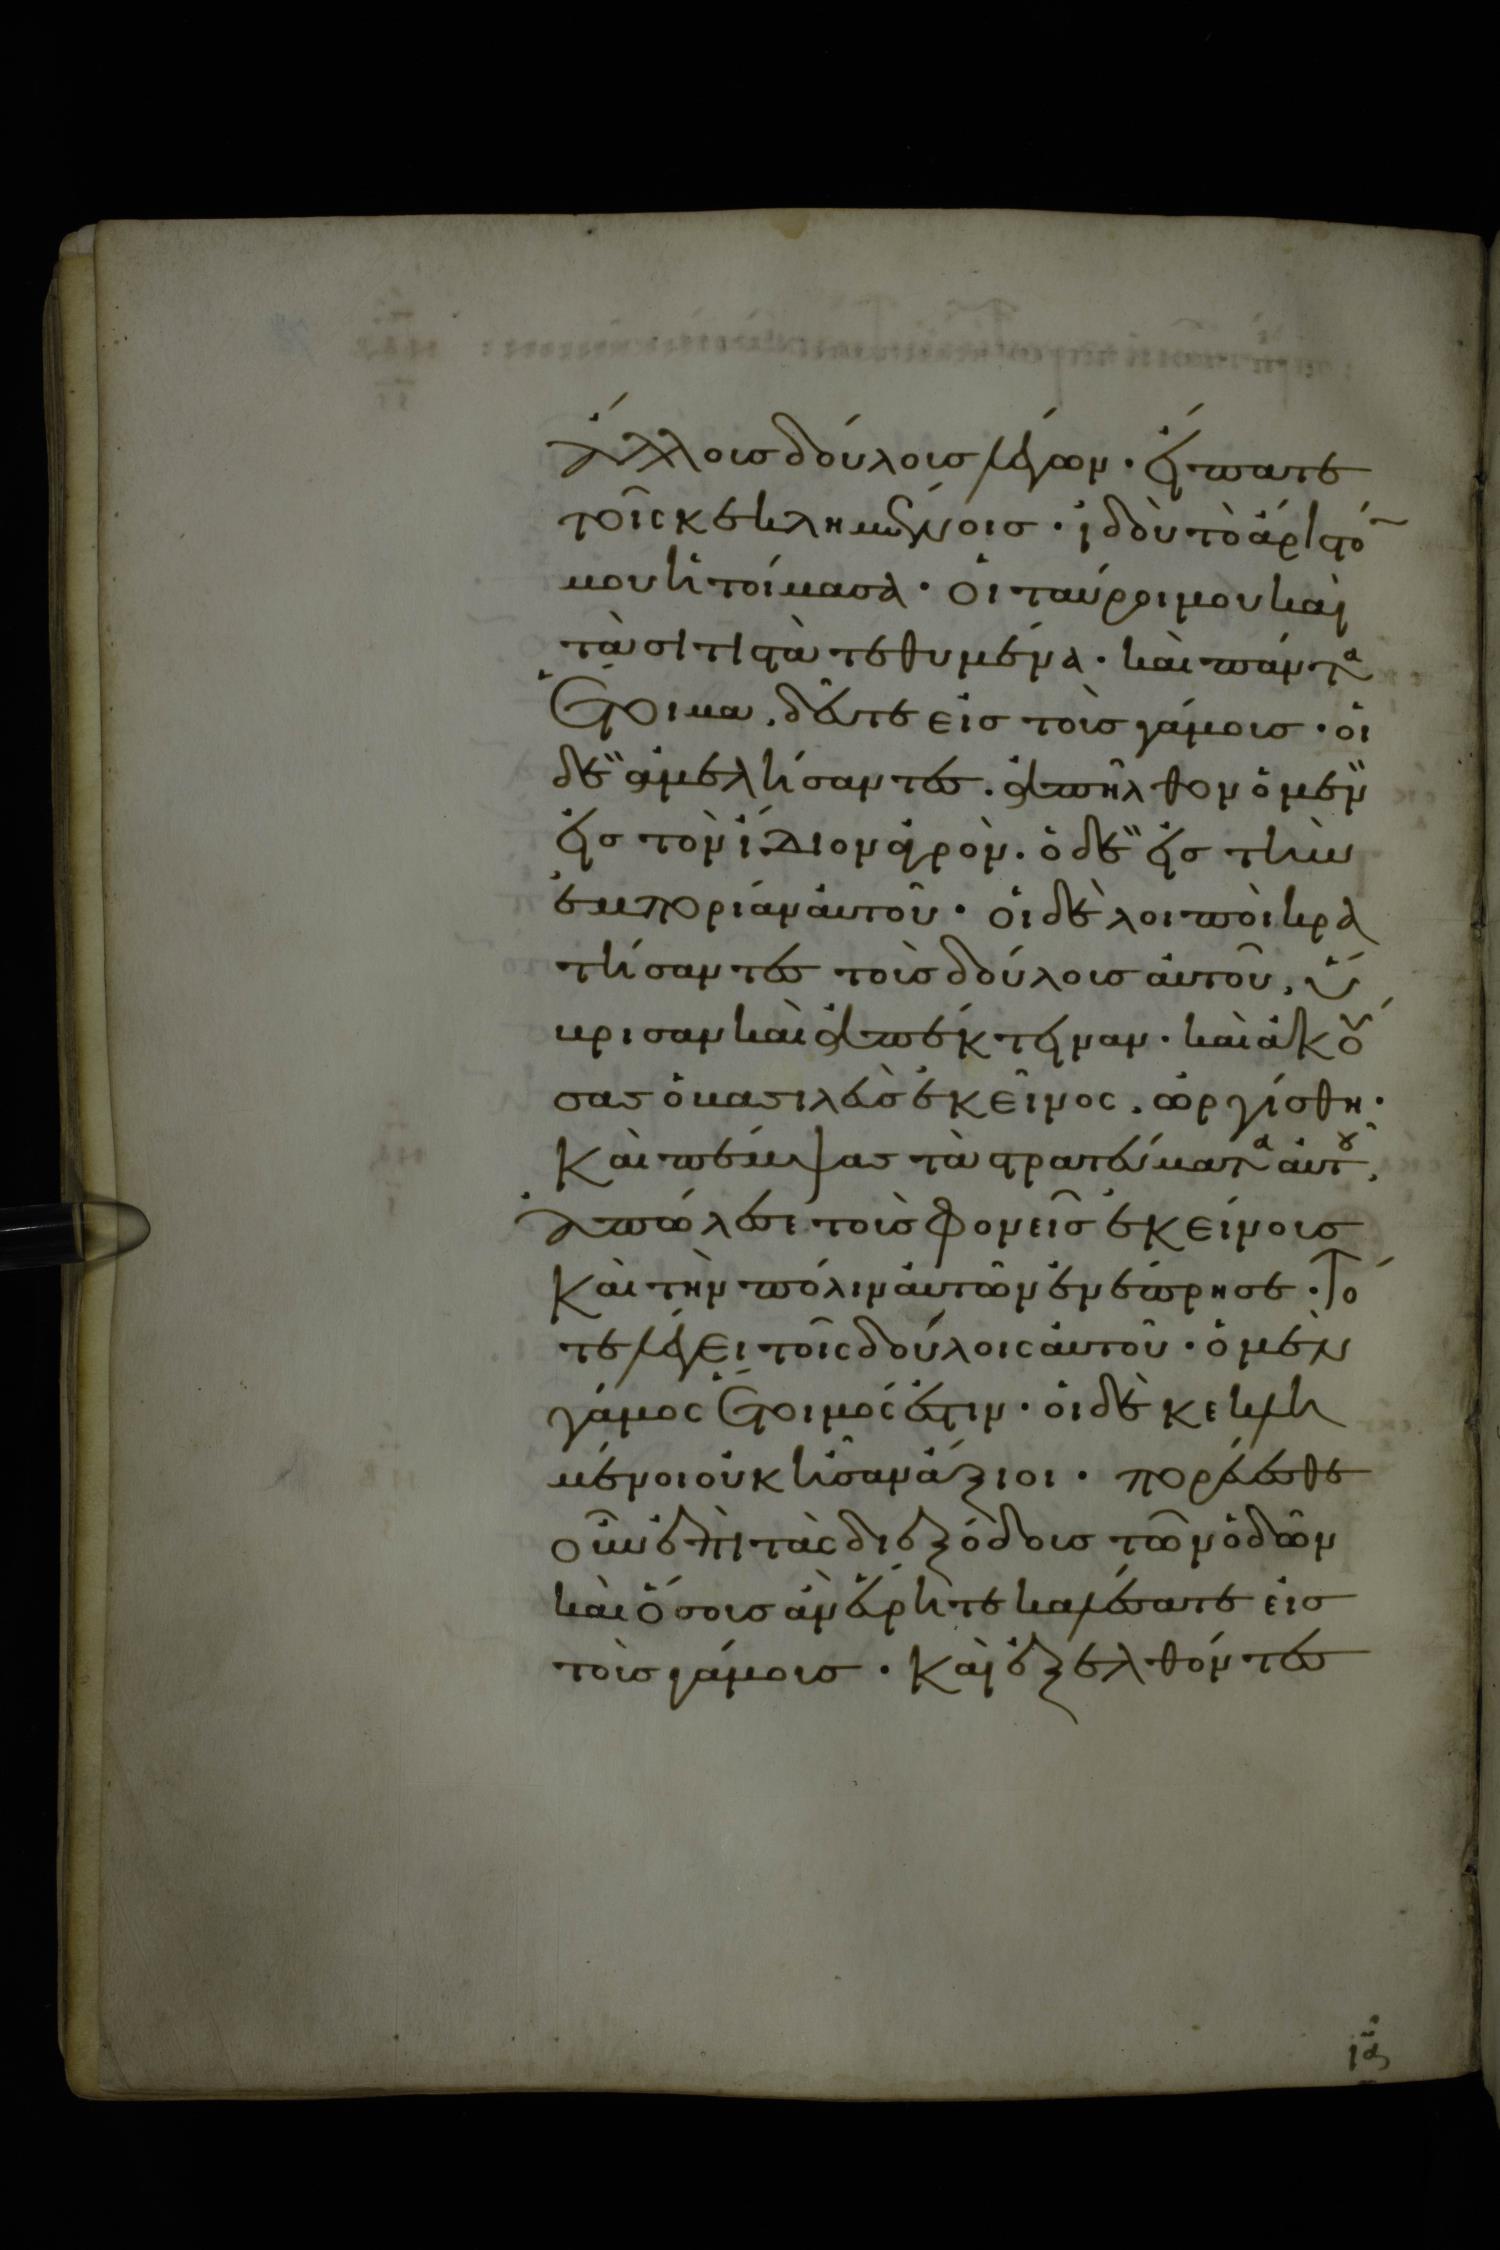 ἄλλους δούλους λέγων · εἴπατε
τοῖς κεκλημένοις · ἰδοὺ τὸ ἄριστό̄
μου ἡτοίμασα · οἱ ταῦροι μου καὶ
τὰ σιτιστὰ τεθυμένα · καὶ πάντα
ἕτοιμα . δεῦτε εἰς τοὺς γάμους · οἱ
δὲ ἀμελήσαντες . ἀπῆλθον ὁ μὲν
εἰς τὸν ἴδιον ἀγρὸν . ὁ δὲ εἰς τὴν
ἐμπορίαν αὐτοῦ · οἱ δὲ λοιποὶ κρα
τήσαντες τοὺς δούλους αὐτοῦ , ὕ
βρισαν καὶ ἀπέκτειναν · καὶ ἀκού
σας ὁ βασιλεὺς ἐκεῖνος , ὠργίσθη ·
Καὶ πέμψας τὰ στρατεύματα αὐτοῦ ,
ἀπώλεσε τοὺς φονεῖς ἐκείνους
Καὶ τὴν πόλιν αὐτῶν ἐνέπρησε · Τό
τε λέγει τοῖς δούλοις αὐτοῦ · ὁ μὲν
γάμος ἕτοιμός ἐστιν · οἱ δὲ κεκλη
μένοι οὐκ ἦσαν ἄξιοι · πορεύεσθε
οὖν ἐπὶ τὰς διεξόδους τῶν ὁδῶν
καὶ ὅσους ἂν εὕρητε καλέσατε εἰς
τοὺς γάμους · Καὶ ἐξελθόντες